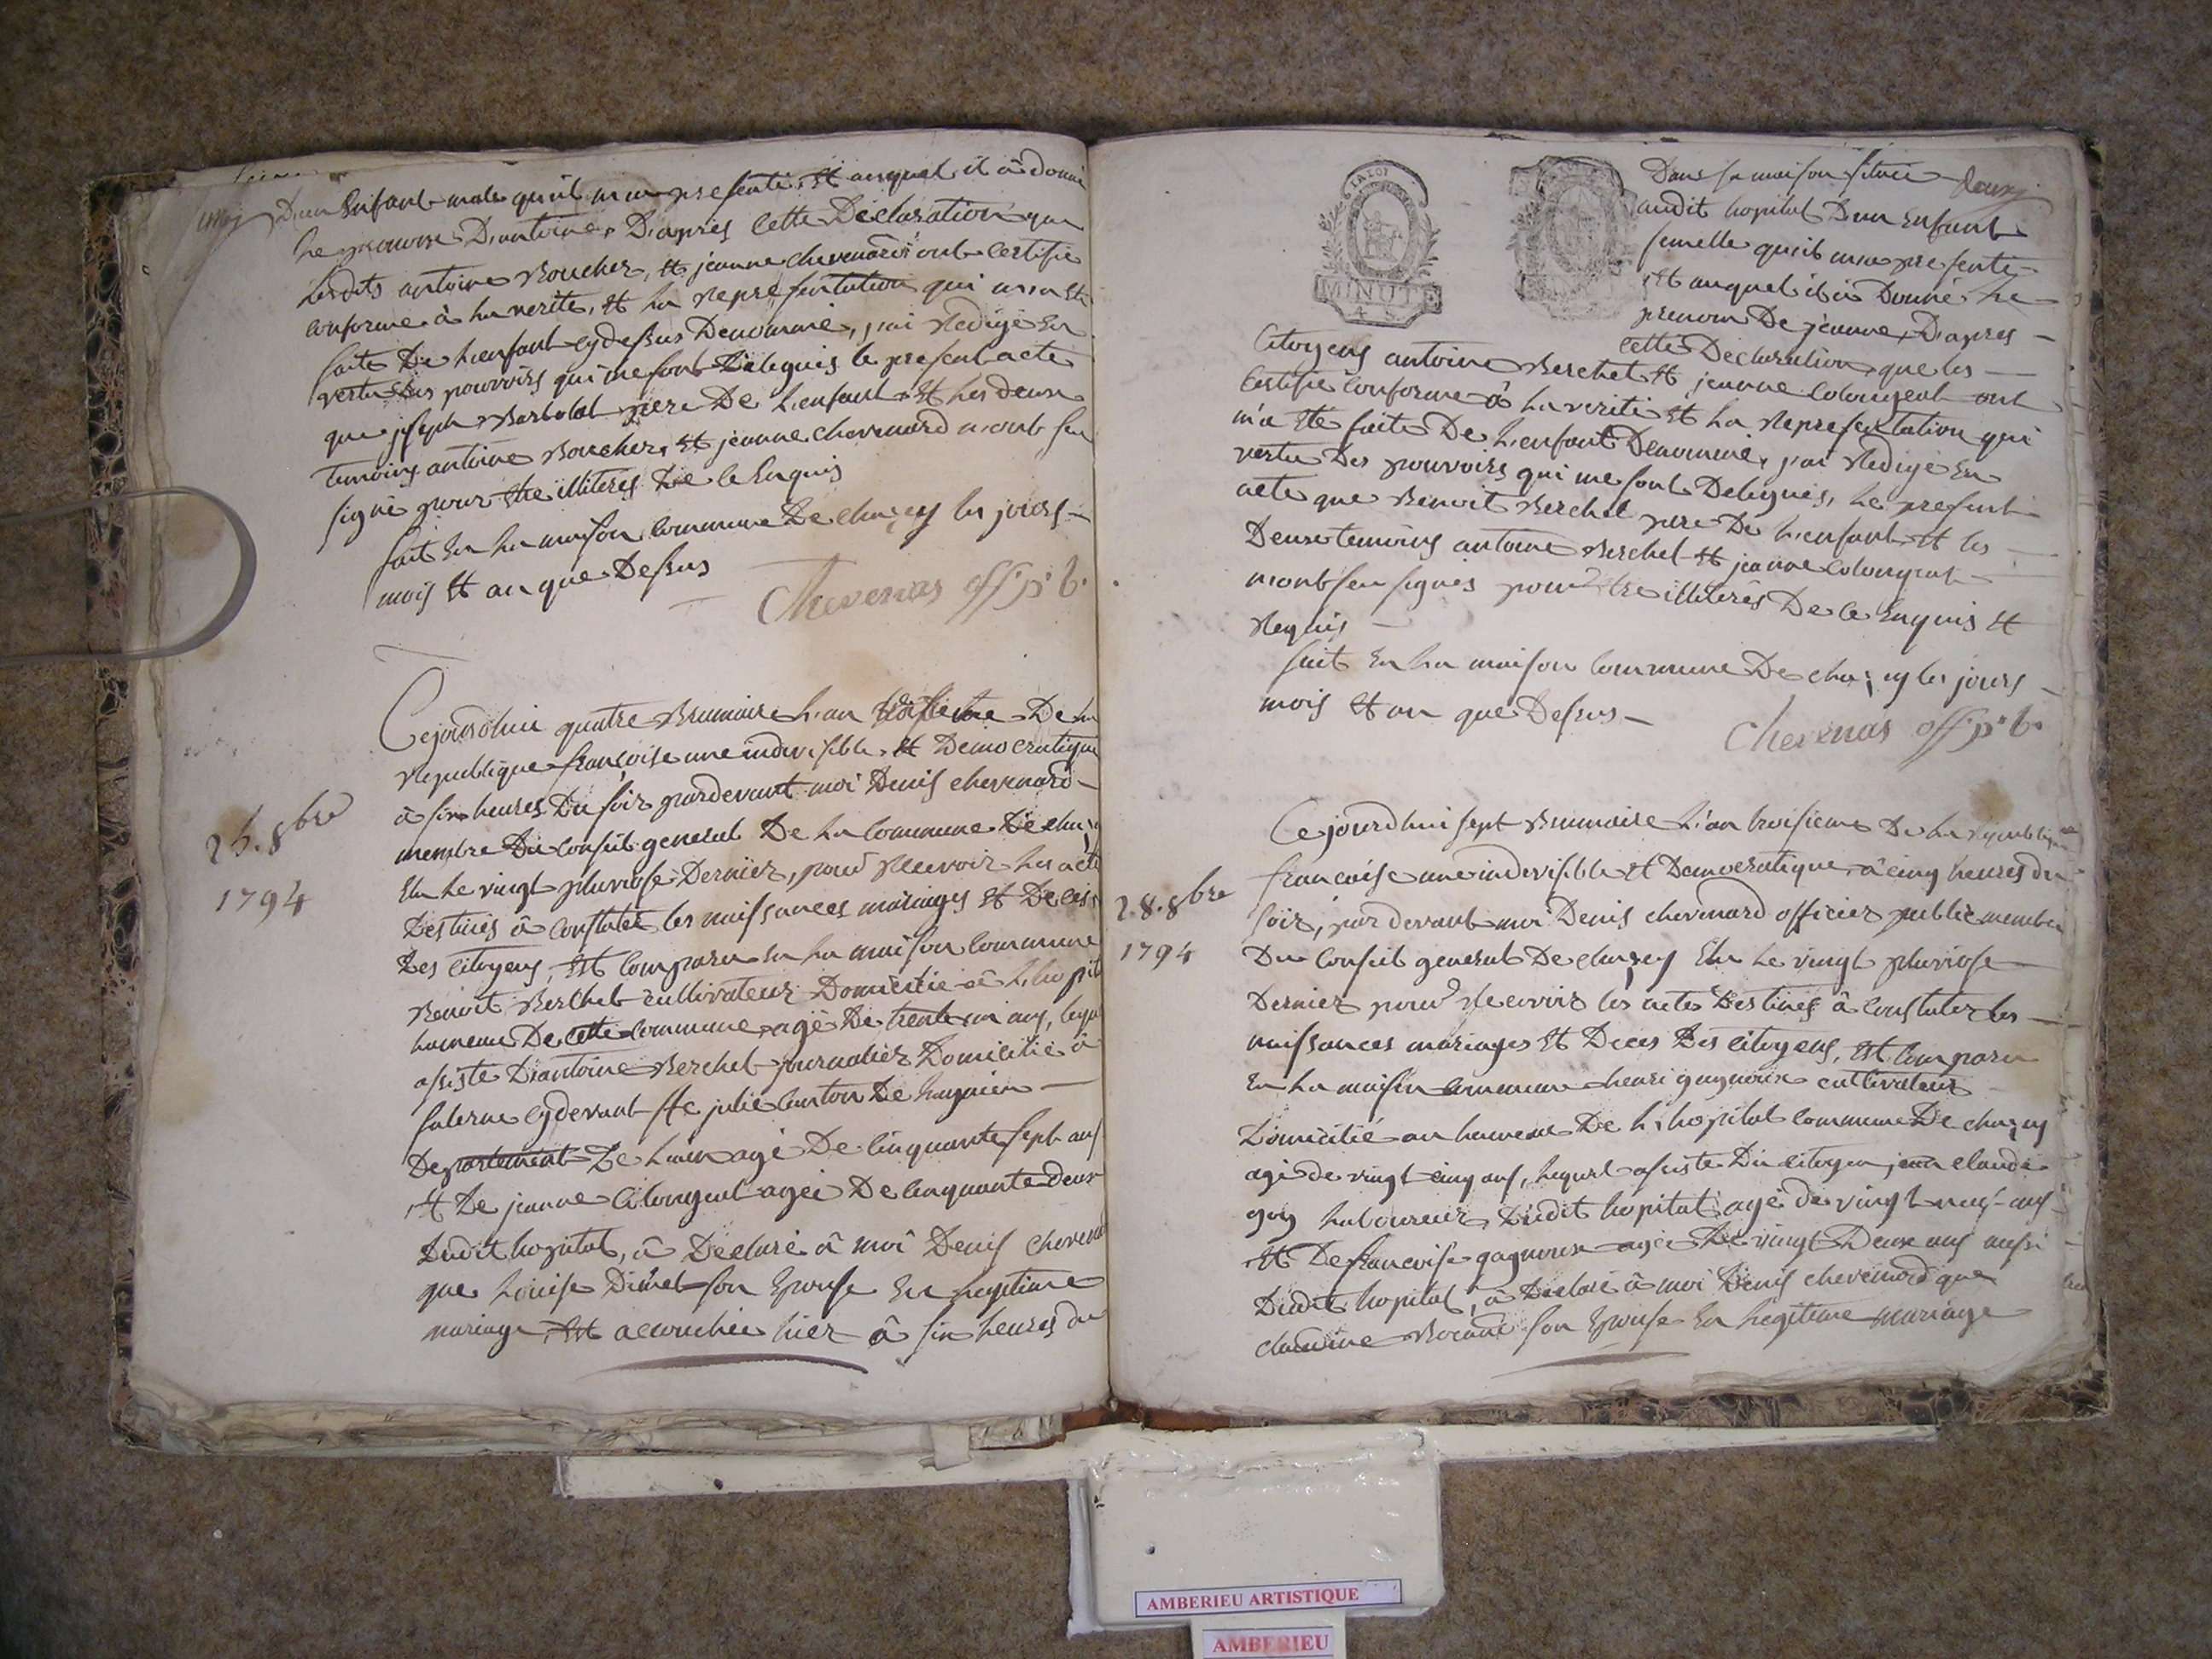 D'un Enfant male qu'il m'a presenté, Et auquel il à donné
le prenom D'antoine, D'apres Cette Déclaration que
Lesdits antoine Boucher, Et jeanne chevenard ont Certifié
Conforme à la verité, Et la Representation qui m'a Eté
faite De L'enfant cydessus Denommé, j'ai Redigé En
vertu des pouvoirs qui me sont Delegués le present acte
que joseph Barbolat pere De L'enfant Et les deux
temoins antoine Boucher, Et jeanne chevenard n'ont seu
signé pour Etre illiterés De Ce Enquis
fait En la maison Commune De chazey les jours
mois Et an que Dessus
Chevenas off. p. b.
Cejourdhui quatre Brumaire L'an troisieme De la
Republique françoise une indivisible Et Democratique
à six heures Du soir pardevant moi Denis chevenard
membre Du Conseil general De la Commune De cha
Elu le vingt pluviose Dernier, pour Recevoir les acte
Destinés à Constater les naissances mariages Et Deces
Des Citoyens, Est Comparu En la maison Commune
Benoit Berchet Cultivateur Domicilié à L'hopit
hameau De Cette Commune, agé De trente un ans, lequ
assisté D'antoine Berchet journalier Domicilié à
Salerne cydevant Ste julie Canton De Lagnieu
Departement De L'ain agé De Cinquante sept ans
Et De jeanne Colongeat agée De Cinquante deux
Dudit hopital, à Declaré à moi Denis chevenar
que Louise Dimet son Epouse En legitime
mariage, Est accouchée hier à six heures du
25. 8bre
1794
LA LOI
MINUTE
Dans sa maison située
audit hopital D'un Enfant
femelle qu'il m'a presenté
Et auquel il à Donné le
prenom De jeanne, D'apres
Cette Declaration, que les
Citoyens antoine Berchet Et jeanne Colongeat ont
Certifié Conforme à la verité Et la Representation qui
m'a Eté faite De L'enfant Denommé, j'ai Redigé En
vertu Des pouvoirs qui me sont Delegués, le present
acte que Benoit Berchet pere De L'enfant Et les
Deux temoins antoine Berchet Et jeanne Colongeat
n'ont seu signés pour Etre illiterés De Ce Enquis Et
Requis
fait En la maison Commune De chazey les jours
mois Et an que Dessus
Chevenas off. p. b.
Ce jourdhui sept Brumaire L'an troisieme De la Republique
francoise une indivisible Et Democratique, à cinq heures du
soir, par devant moi Denis chevenard officier public membre
Du Conseil general De chazey Elu le vingt pluviose
Dernier pour Recevoir les actes Destinés à Constater les
naissances mariages Et Deces Des Citoyens, Est Comparu
En la maison Commune henri gagnoux cultivateur
Domicilié au hameau De L'hopital commune De chazey
agé de vingt cinq ans, lequel assisté Du citoyen jean claude
goy Laboureur Dudit hopital agé de vingt neuf ans
Et De francoise gagnoux agée De vingt Deux ans aussi
Dudit hopital, à Declaré à moi Denis chevenard que
claudine son Epouse En Legitime mariage
28. 8bre
1794
AMBERIEU ARTISTIQUE
AMBERIEU